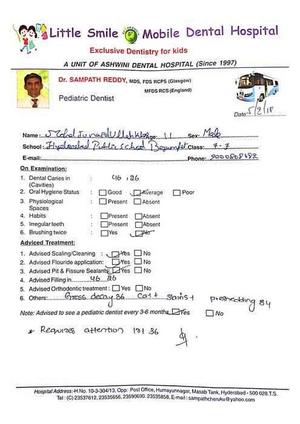 Little Smile Mobile Dental Hospital
Exclusive Dentistry for kids
A UNIT OF ASHWINI DENTAL HOSPITAL (Since 1997)
Dr. SAMPATH REDDY, MDS, FDS RCPS (Glasgow)
MFDS RCS (England)
Pediatric Dentist
Name: Age: 11 Sex: Male
School: Hyderabad Public School Begumpet Class:
E-mail: Phone:
On Examination:
1. Dental Caries in 46, 26
(Cavities)
2. Oral Hygiene Status : Good Average Poor
3. Physiological : Present Absent
Spaces
4. Habits : Present Absent
5. Irregular teeth : Present Absent
6. Brushing twice : Yes No
Adviced Treatment:
1. Advised Scaling/Cleaning : Yes No
2. Advised Flouride application: Yes No
3. Advised Pit & Fissure Sealants Yes No
4. Advised Filling in 46 26
5. Advised Orthodontic treatment : Yes No
6. Others: Gross decay 36
Note: Advised to see a pediatric dentist every 3-6 months Yes No
* Requires attention 36
Hospital Address: H No. 10-3-304/13, Opp: Post Office, Humayunnagar, Masab Tank, Hyderabad - 500 028.T.S.
Tel: (C) 23537612, 23535656, 23590690, 23535858, E-mail : sampathcheruku@yahoo.com